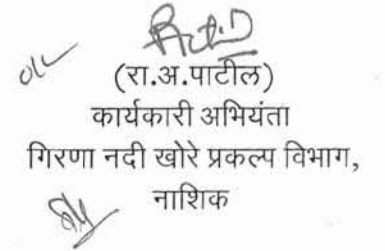 (रा.अ.पाटील)
कार्यकारी अभियंता
गिरणा नदी खोरे प्रकल्प विभाग,
नाशिक